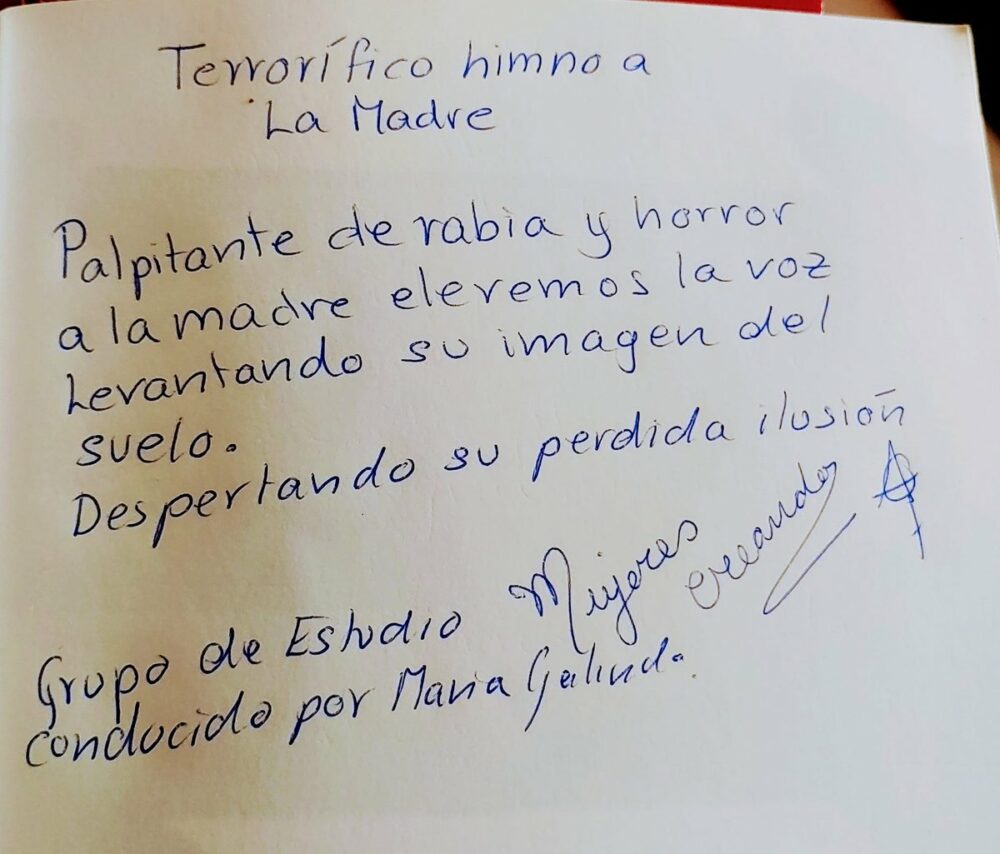 Terrorífico himno a
La Madre
Palpitante de rabia y horror
a la madre elevemos la voz
Levantando su imagen del
suelo.
Despertando su perdida ilusión
Grupo de Estudio Mujeres
creando
conducido por María Galindo.